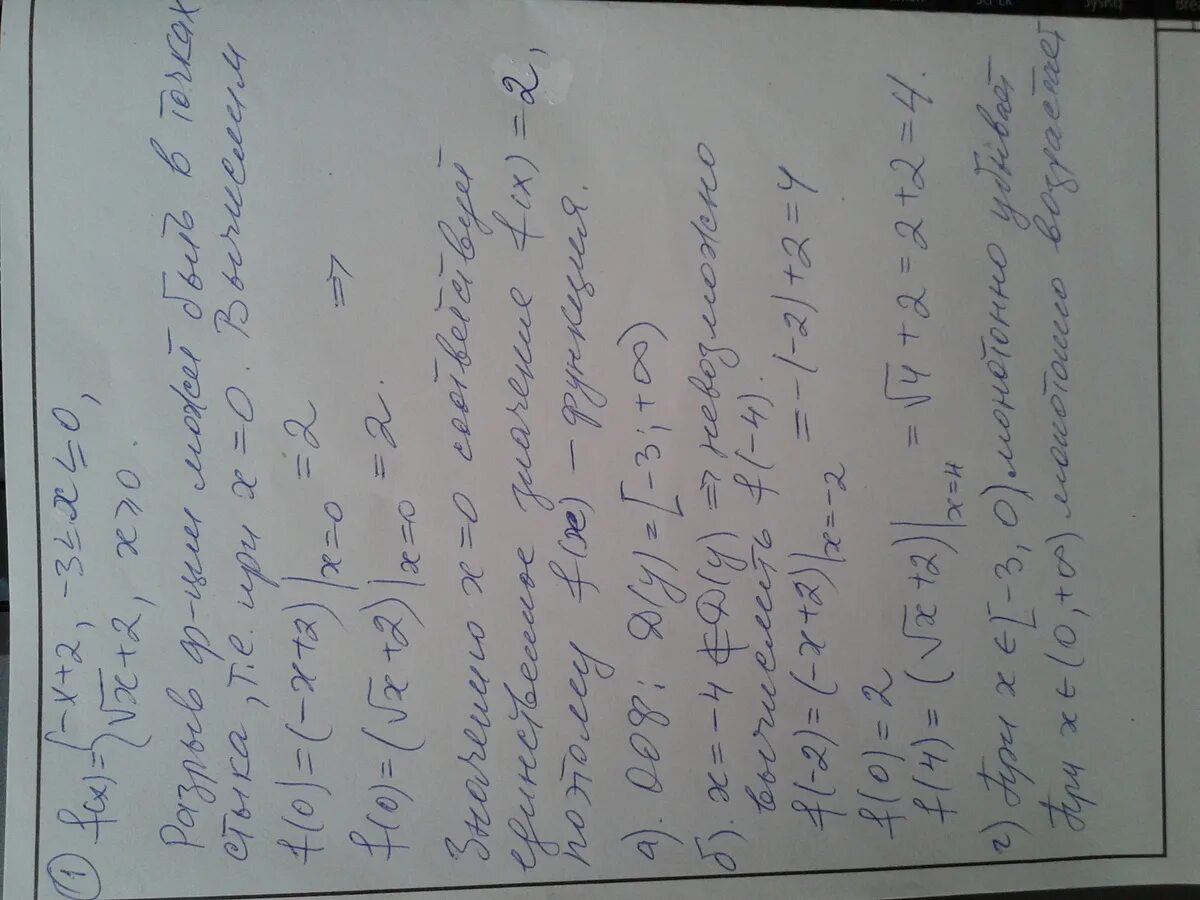 ① f(x)={-x+2, -3≤x≤0,
{√x+2, x≥0.
Разрыв ф-ции может быть в точках
стыка, т.е. при x=0. Вычислим
f(0)=(-x+2)|x=0 =2
⇒
f(0)=(√x+2)|x=0 =2.
Значению x=0 соответствует
единственное значение f(x)=2,
поэтому f(x) - функция.
а). ООФ: D(y)=[-3;+∞)
б). x=-4 ∉ D(y) ⇒ невозможно
вычислить f(-4).
f(-2)=(-x+2)|x=-2 =-(-2)+2=4
f(0)=2
f(4)=(√x+2)|x=4 =√4+2=2+2=4.
г) При x∈[-3,0) монотонно убывает
При x∈(0,+∞) монотонно возрастает